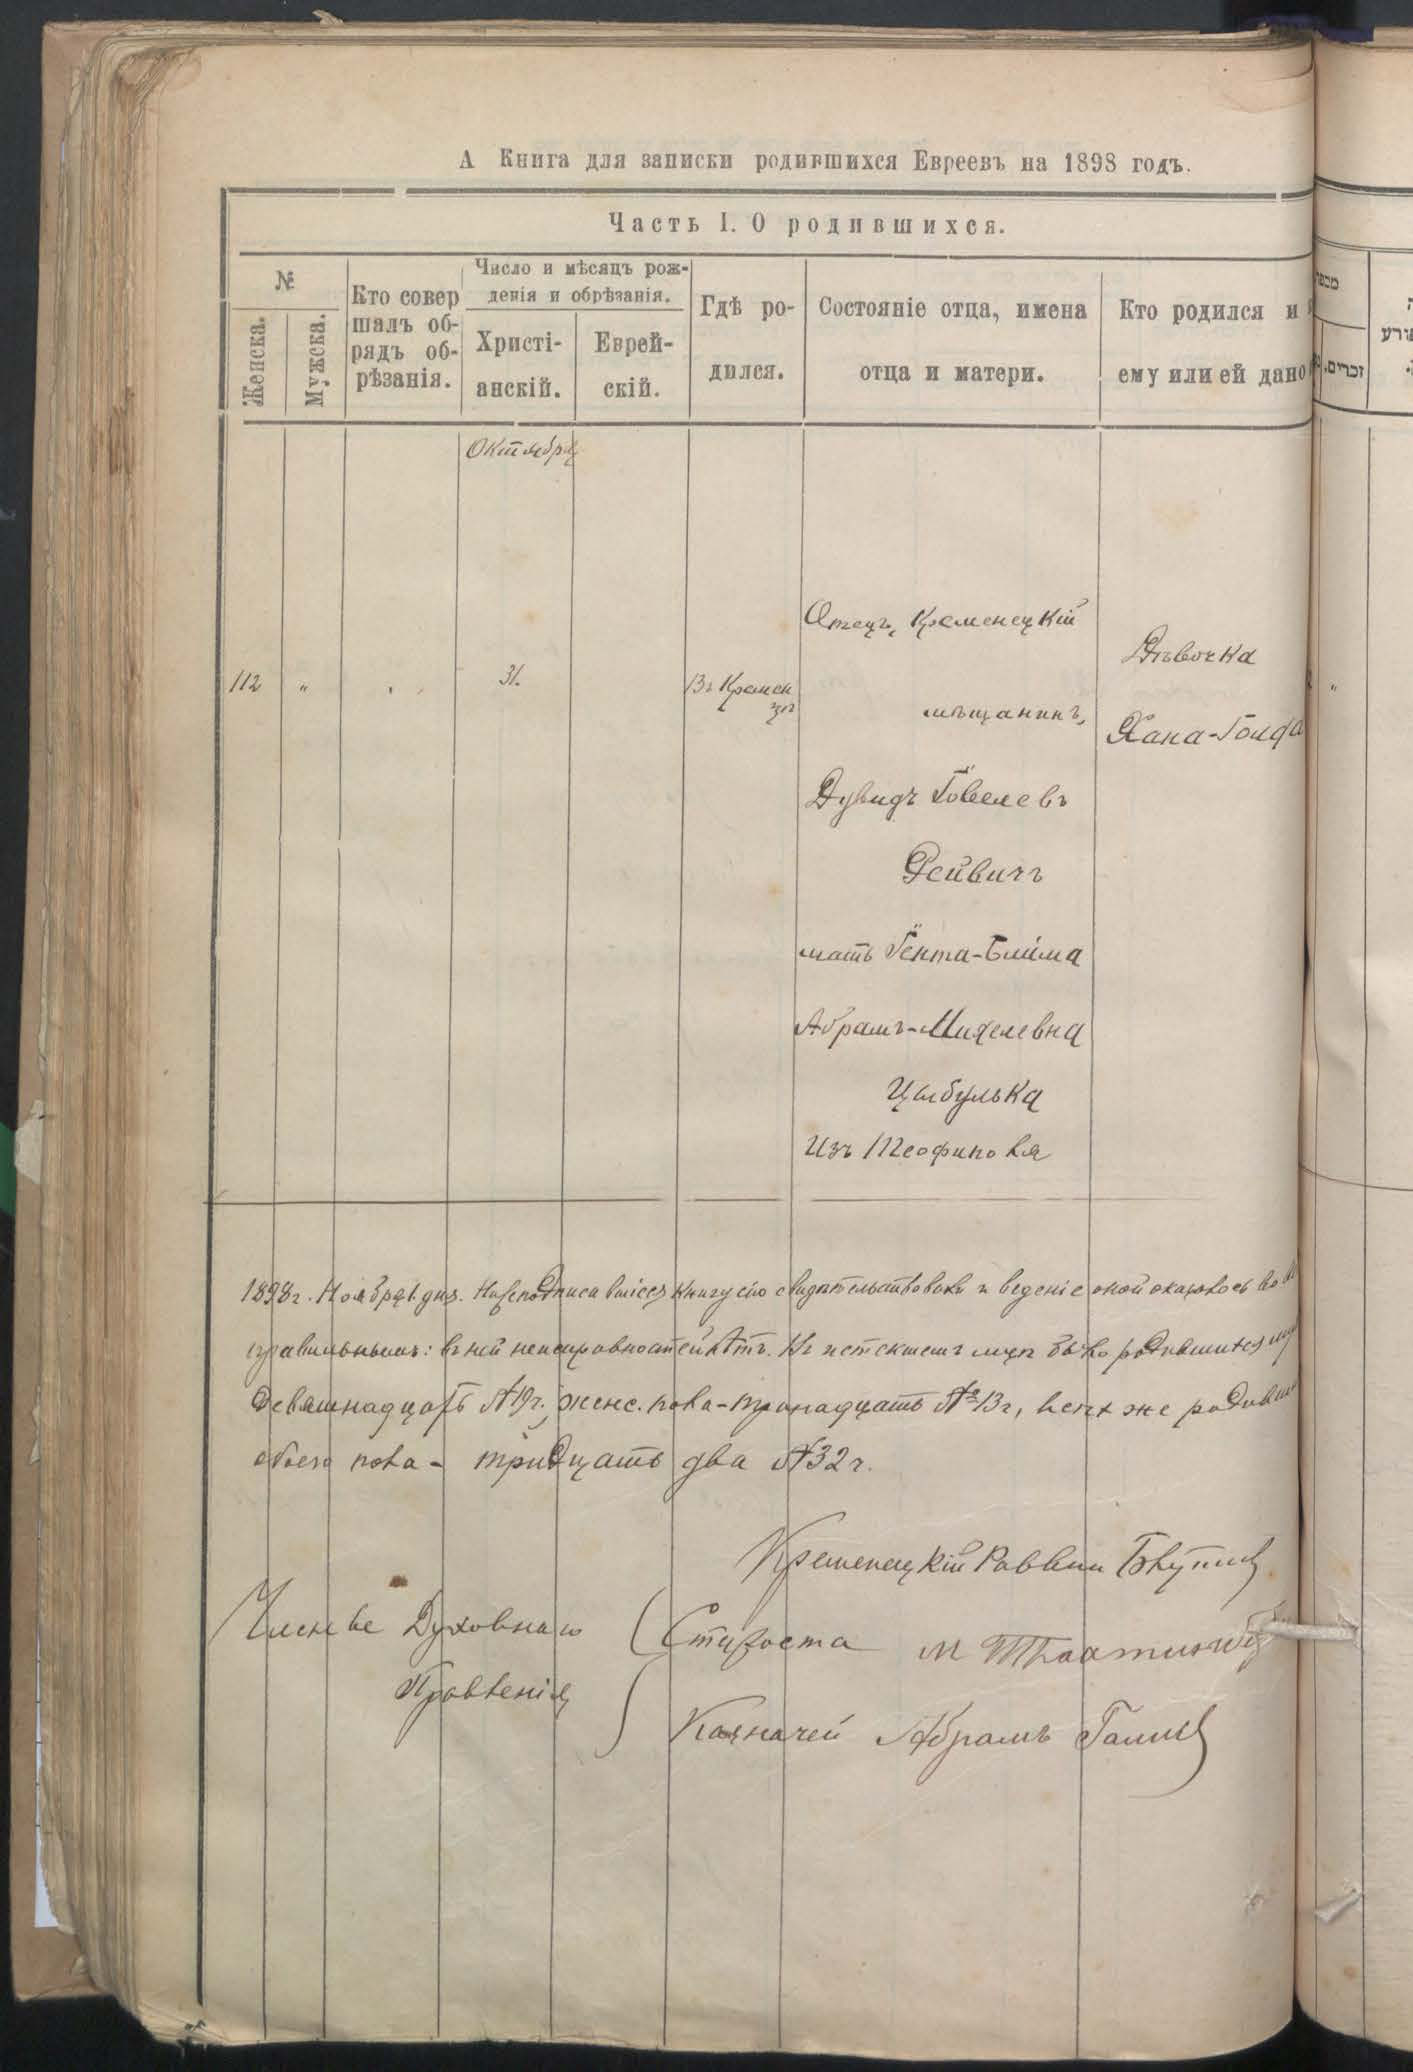 А Книга для записки родившихся Евреевъ на 1898 годъ.
Часть I. О родившихся.
№
Женска.
Мужска.
Кто совер
шалъ об-
рядъ об-
рѣзанія.
Число и мѣсяцъ рож-
денія и обрѣзанія.
Христі-
анскій.
Еврей-
скій.
Гдѣ ро-
дился.
Состояніе отца, имена
отца и матери.
Кто родился и
ему или ей дано
Октября
112
"
31.
Въ Кремен
цѣ
Отецъ, Кременецкій
мѣщанинъ,
Дувидъ Іовелевъ
Рейвичъ
мать Гента-Блима
Абрамъ-Михелевна
Цыбулька
Изъ Теофиполя
Дѣвочка
Хана-Голда
1898 г. Ноября 1 дня. Нижеподписавшіеся книгу сію свидѣтельствовали и веденіе оной оказалось
правильнымъ: въ ней неисправностей нѣтъ. Въ истекшемъ мцѣ было родившихся муж
девятнадцать №19 г., женс. пола - тринадцать №13 г., всехъ же родивш
обоего пола - тридцать два №32 г.
Кременецкій Раввинъ
Члены Духовнаго
Правленія
Староста М
Казначей Абрамъ
זכרים.